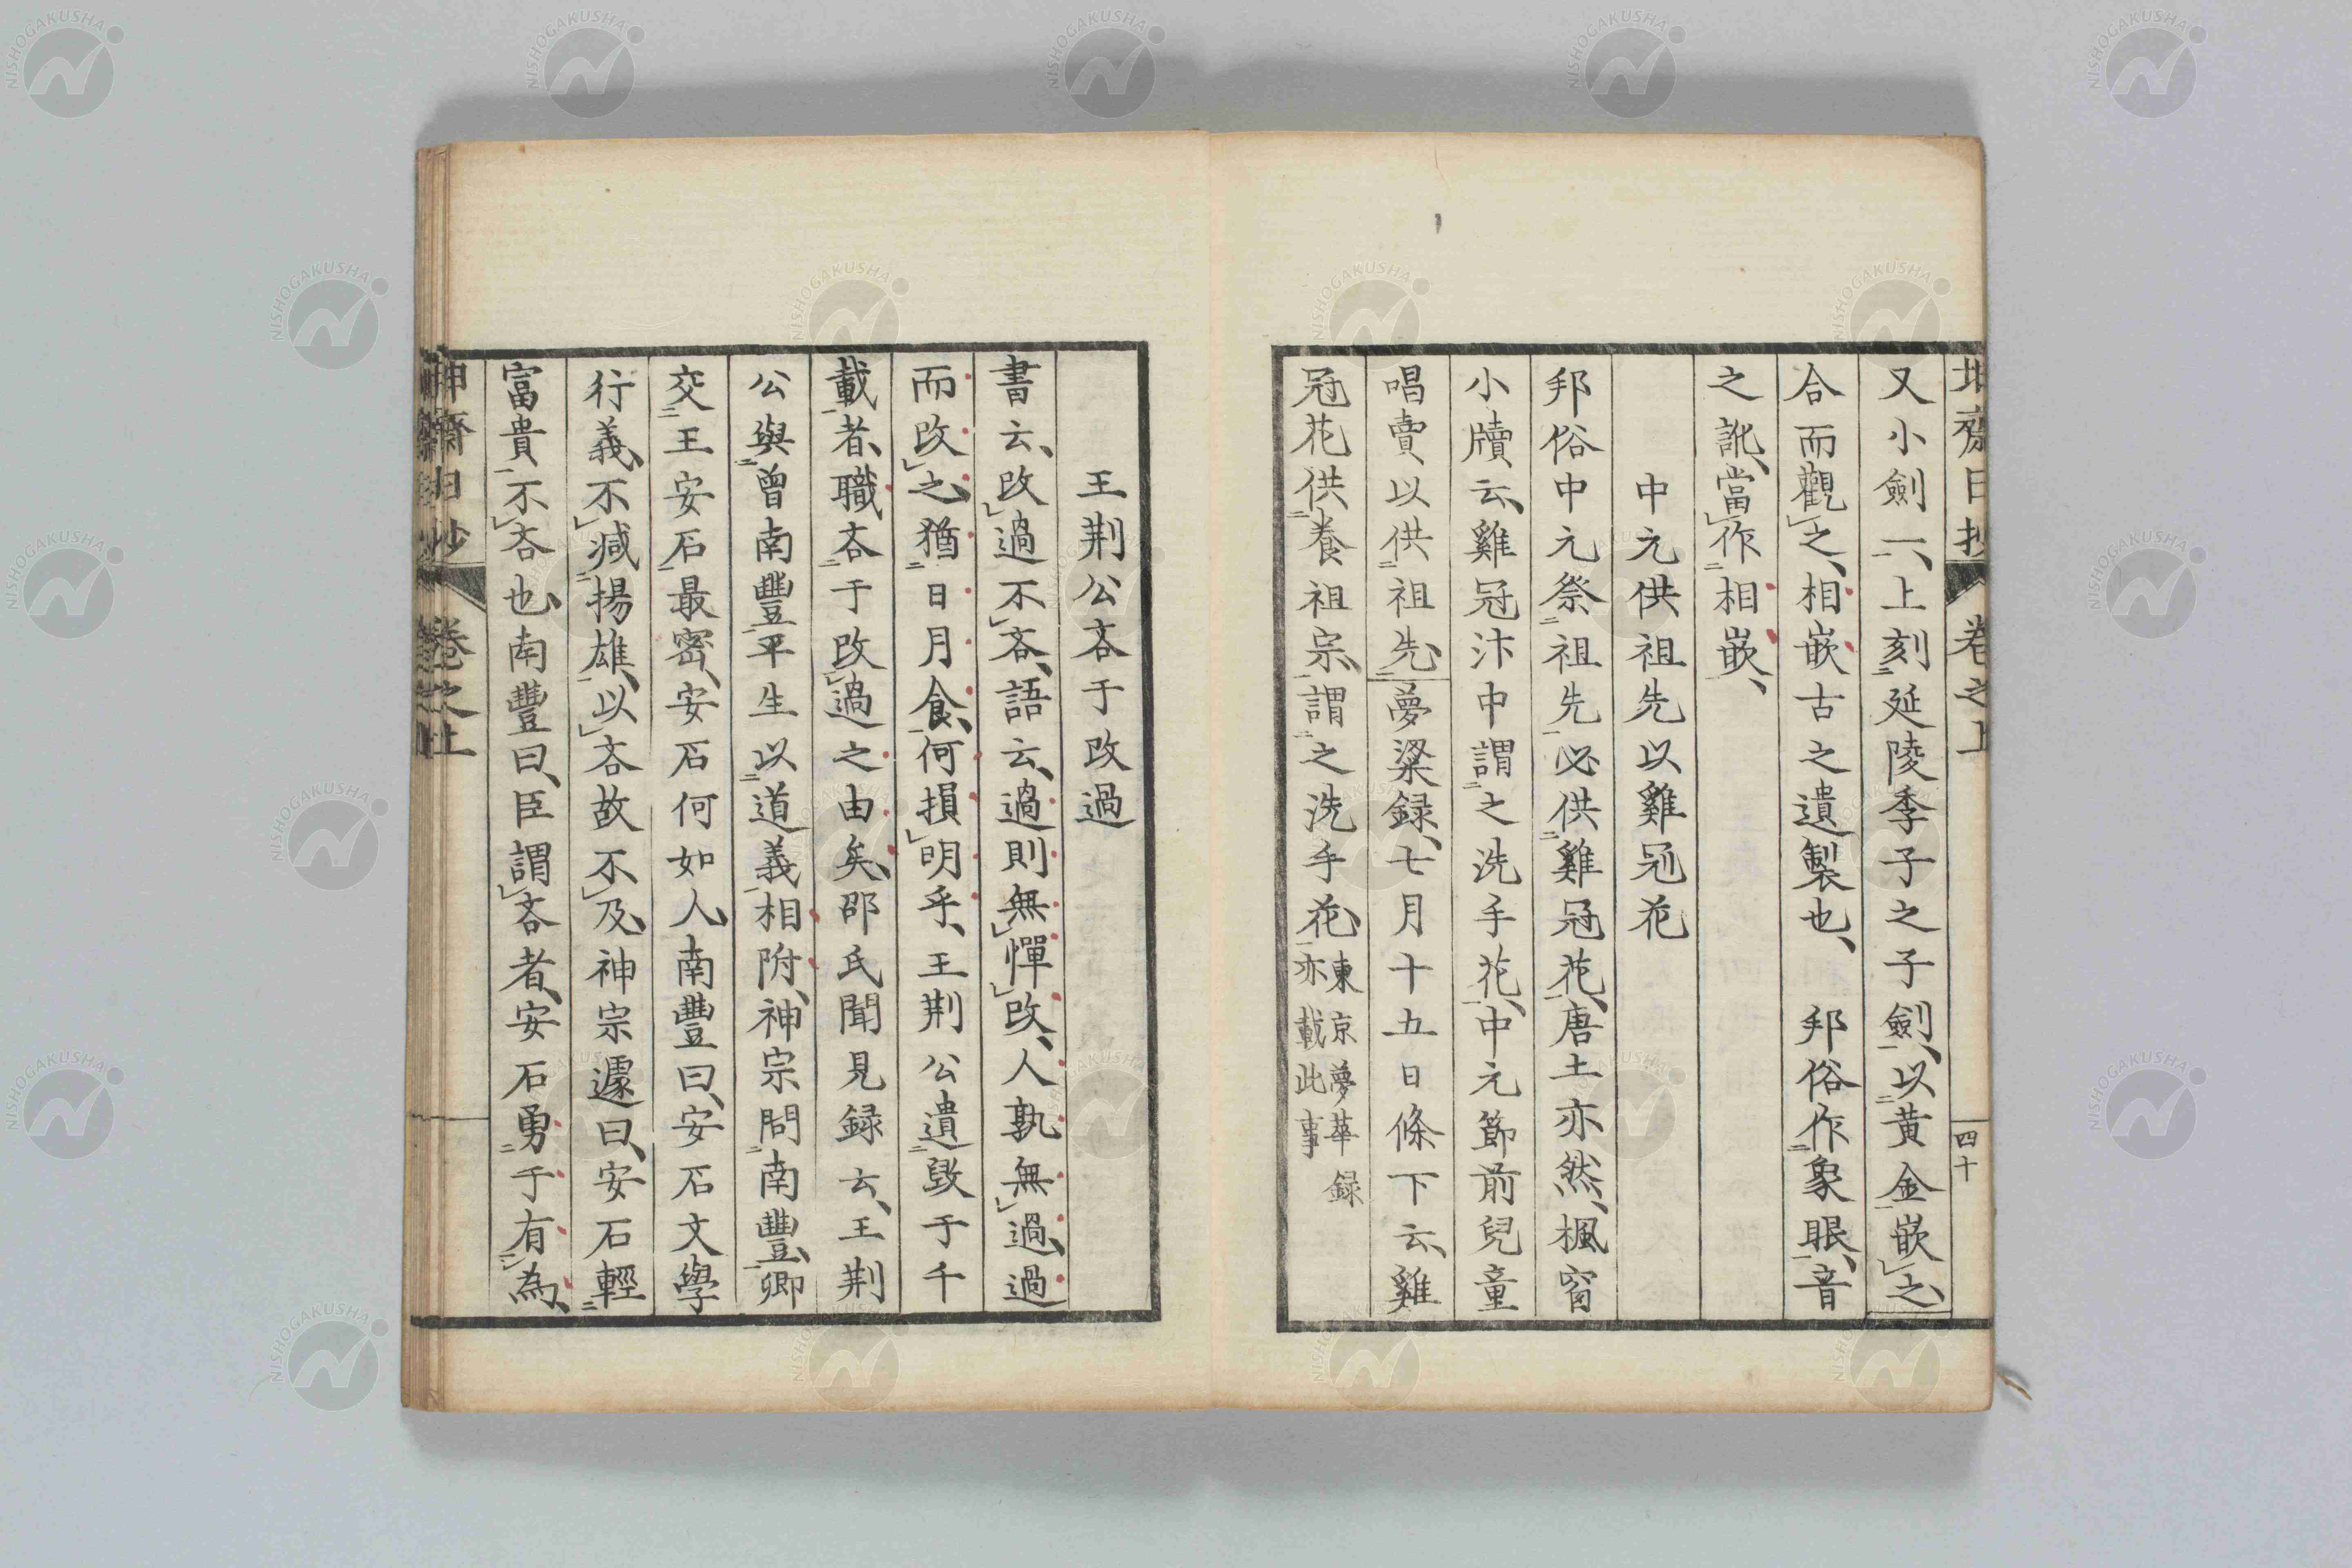 又小劍一、上刻延陵季子之子劍、以黃金嵌之、
合而觀之、相嵌古之遺製也、　邦俗作象眼、音
之訛、當作相嵌、
中元供祖先以雞冠花
邦俗中元祭祖先必供雞冠花、唐土亦然、楓窗
小牘云、雞冠汴中謂之洗手花、中元節前兒童
唱賣以供祖先、夢粱録、七月十五日條下云、雞
冠花供養祖宗、謂之洗手花、東京夢華録
亦載此事
日
卷之上
四十
王荆公吝于改過
書云、改過不吝、語云、過則無憚改、人孰無過、過
而改之、猶日月食、何損明乎、王荆公遺毀于千
載者、職吝于改過之由矣、邵氏聞見録云、王荆
公與曾南豐平生以道義相附、神宗問南豐、卿
交王安石最密、安石何如人、南豐曰、安石文學
行義、不減揚雄、以吝故不及、神宗遽曰、安石輕
富貴、不吝也、南豐曰、臣謂吝者、安石勇于有為、
卷之上
NISHOGAKUSHA